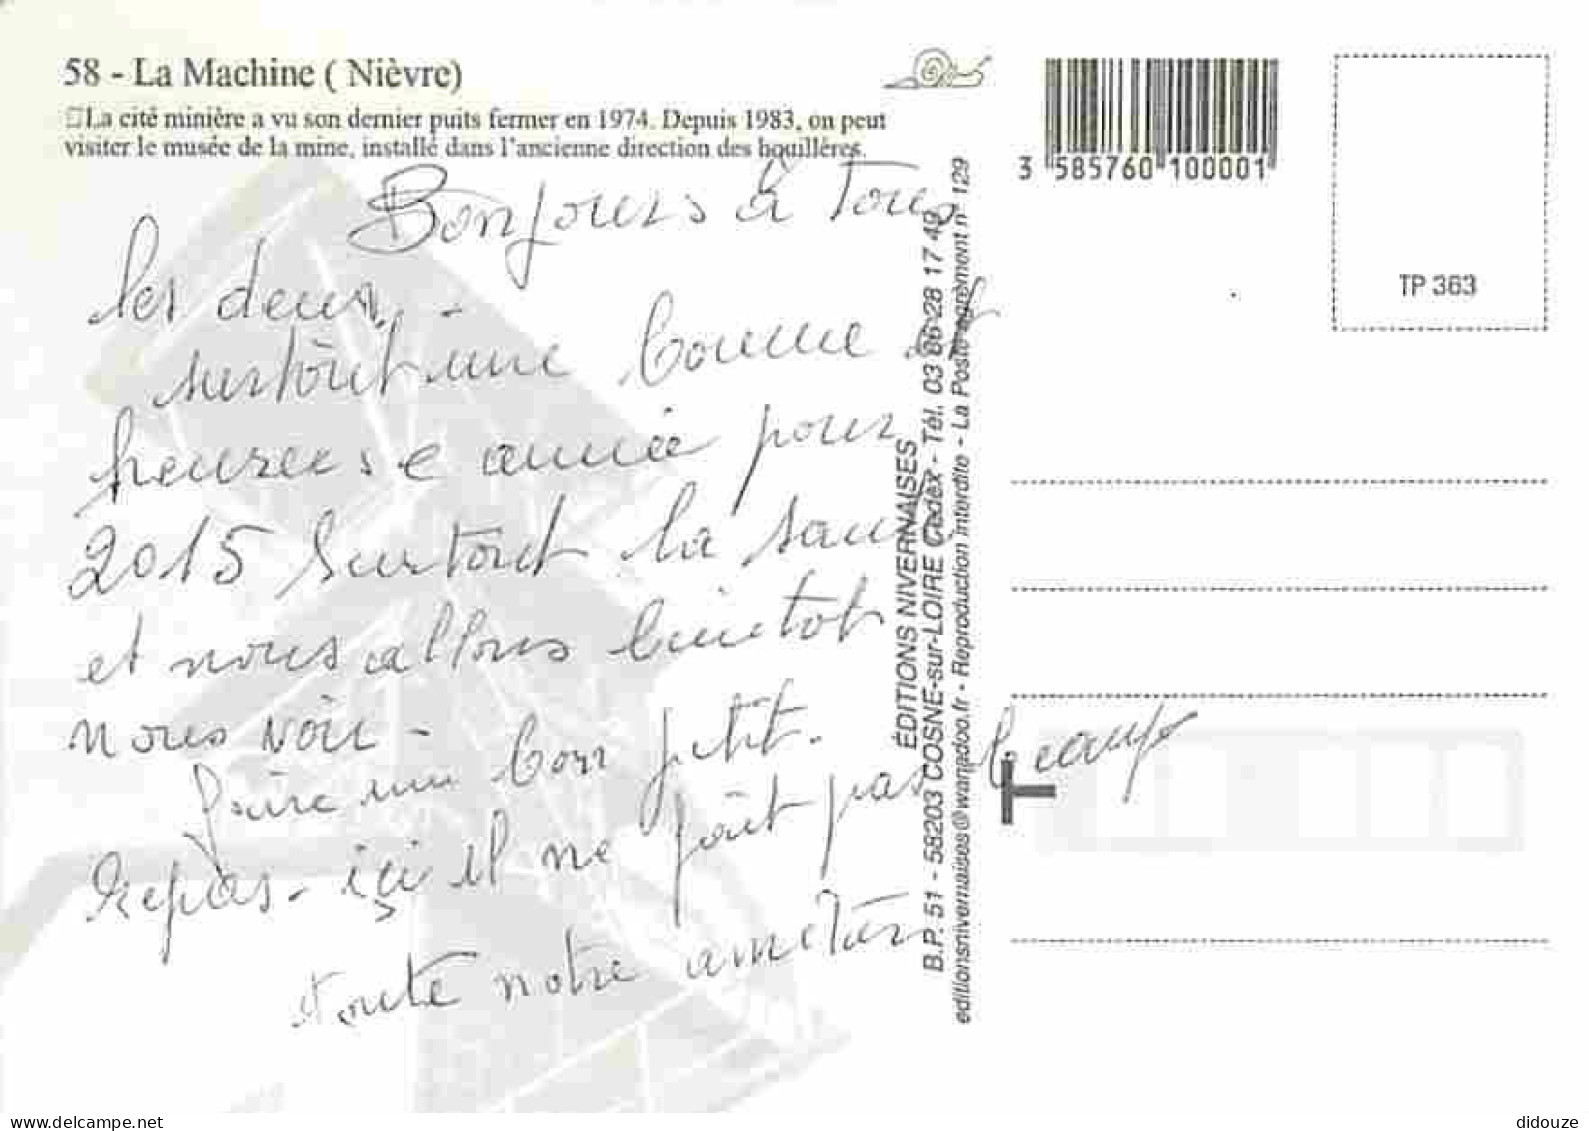 58 - La Machine ( Nièvre)
La cité minière a vu son dernier puits fermer en 1974. Depuis 1983, on peut
visiter le musée de la mine, installé dans l'ancienne direction des houillères.
3 585760 100001
TP 363
Bonjours à Tous
les deux -
surtôut une bonne et
heureuse année pour
2015 Surtout la santé
et nous allons bientot
nous voir -
faire un bon petit.
repas - içi il ne fait pas beaup
toute notre
ÉDITIONS NIVERNAISES
B.P. 51 - 58203 COSNE-sur-LOIRE Cedex - Tél. 03 86 28 17 49
editionsnivernaises@wanadoo.fr - Reproduction interdite - La Poste agrément n° 129
T
delcampe.net
didouze